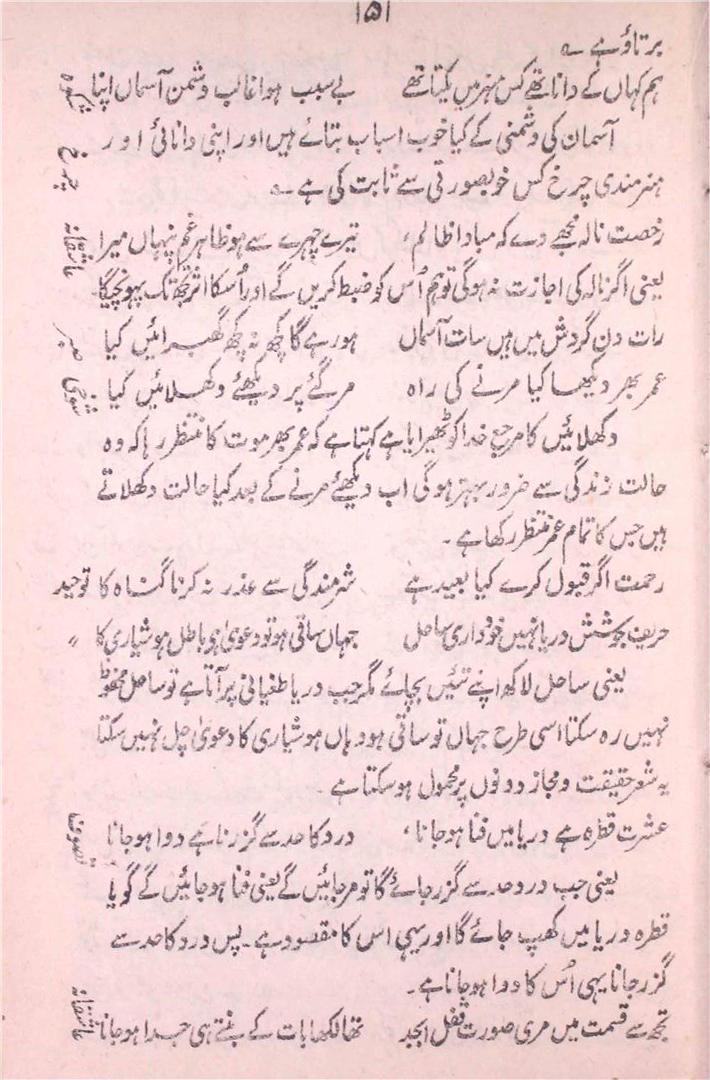 ۱۵۱
برتاؤ ہے ؎
ہم کہاں کے دانا تھے کس ہنر میں یکتا تھے بے سبب ہوا غالب دشمن آسماں اپنا شکوہ
آسمان کی دشمنی کے کیا خوب اسباب بتائے ہیں اور اپنی دانائی اور چرخ
ہنرمندی چرخ کس خوبصورتی سے ثابت کی ہے ؎
رخصت نالہ مجھے دے کہ مبادا ظالم، تیرے چہرے سے ہو ظاہر غم پنہاں میرا عاشقانہ
یعنی اگر نالہ کی اجازت نہ ہوگی تو ہم اُس کو ضبط کریں گے اور اُسکا اثر تجھ تک پہونچیگا
رات دن گردش میں ہیں سات آسماں ہو رہے گا کچھ نہ کچھ گھبرائیں کیا صبر
عمر بھر دیکھا کیا مرنے کی راہ مر گئے پر دیکھئے دکھلائیں کیا شوخی
دکھلائیں کا مرجع خدا کو ٹھیرایا ہے کہتا ہے کہ عمر بھر موت کا منتظر رہا کہ وہ
حالت زندگی سے ضرور بہتر ہوگی اب دیکھئے مرنے کے بعد کیا حالت دکھلاتے
ہیں جس کا تمام عمر منتظر رکھا ہے ۔
رحمت اگر قبول کرے کیا بعید ہے شرمندگی سے عذر نہ کرنا گناہ کا توحید
حریف جوشش دریا نہیں خودداری ساحل جہاں ساقی ہو تو دعویٰ ہی باطل ہوشیاری کا 〃
یعنی ساحل لاکھ اپنے تئیں بچائے مگر جب دریا طغیانی پر آتا ہے تو ساحل محفوظ
نہیں رہ سکتا اسی طرح جہاں تو ساقی ہو وہاں ہوشیاری کا دعویٰ چل نہیں سکتا
یہ شعر حقیقت و مجاز دونوں پر محمول ہوسکتا ہے ۔
عشرت قطرہ ہے دریا میں فنا ہو جانا، درد کا حد سے گزرنا ہے دوا ہو جانا تصوف
یعنی جب درد حد سے گزر جائے گا تو مر جائیں گے یعنی فنا ہو جائیں گے گویا
قطرہ دریا میں کھپ جائے گا اور یہی اس کا مقصود ہے ۔ پس درد کا حد سے
گزر جانا یہی اُس کا دوا ہو جانا ہے ۔
تجھ سے قسمت میں مری صورت قفل ابجد تھا لکھا بات کے بنتے ہی جدا ہو جانا عاشقانہ